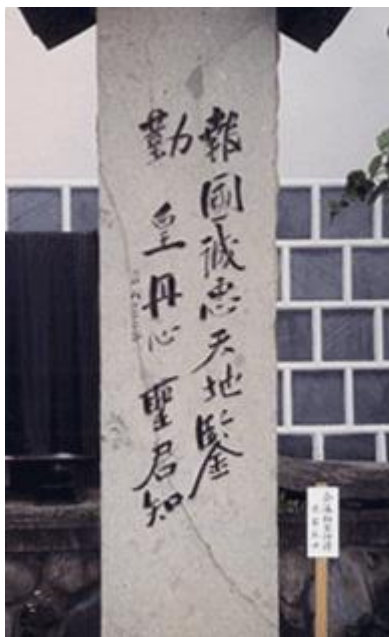 報國誠忠天地鑒
勤皇丹心聖君知